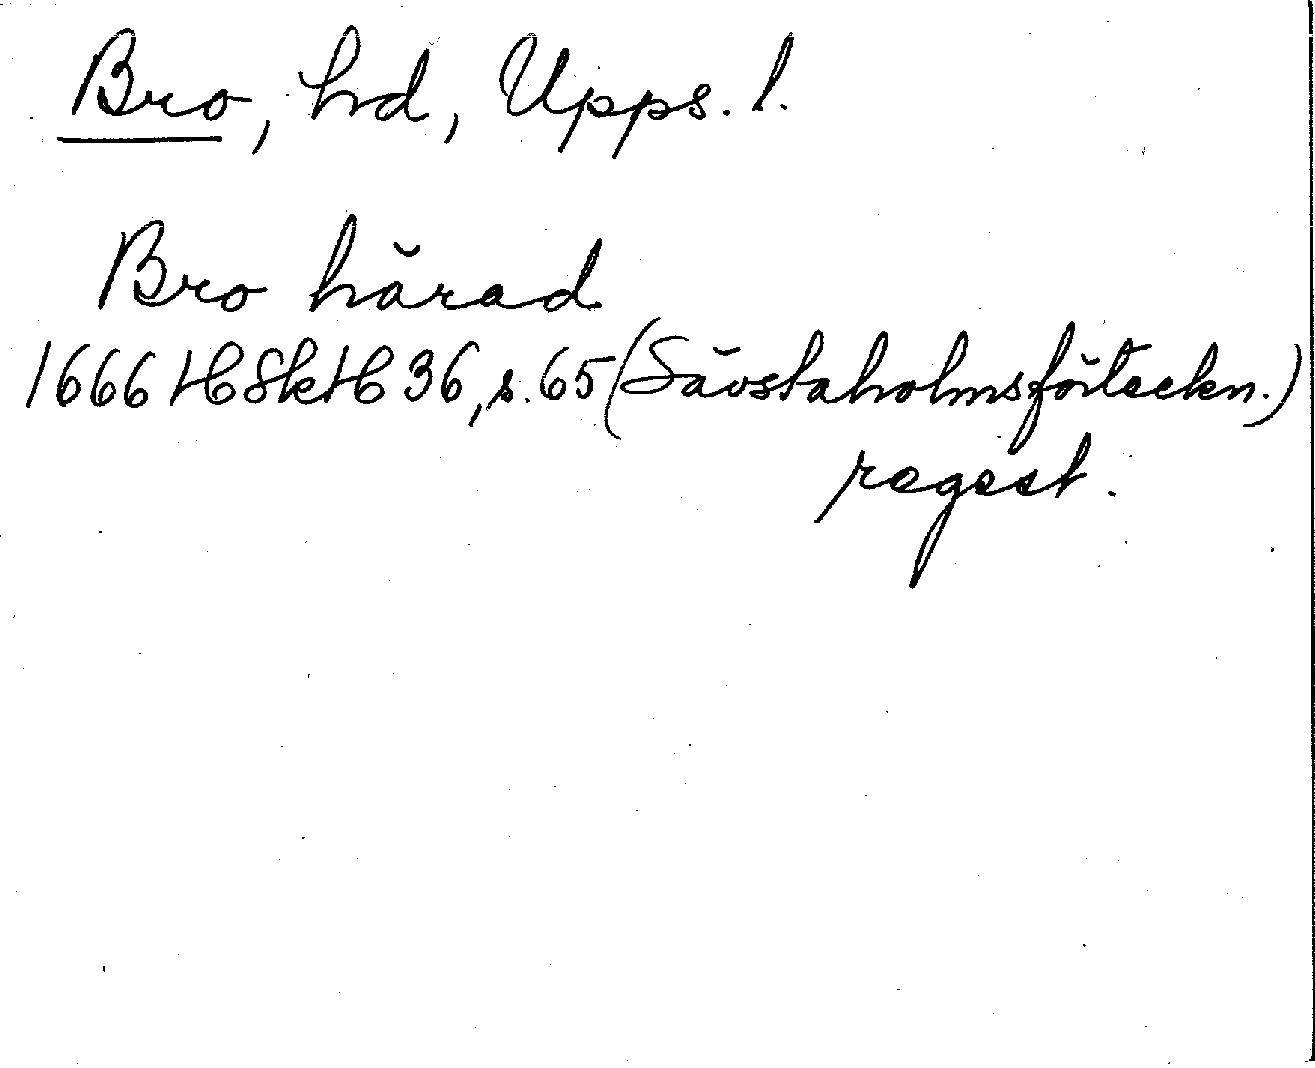 Bro, hd, Upps. l.
Bro härad
1666 HSkH 36, s. 65 (Sävstaholmsförteckn.)
regest.